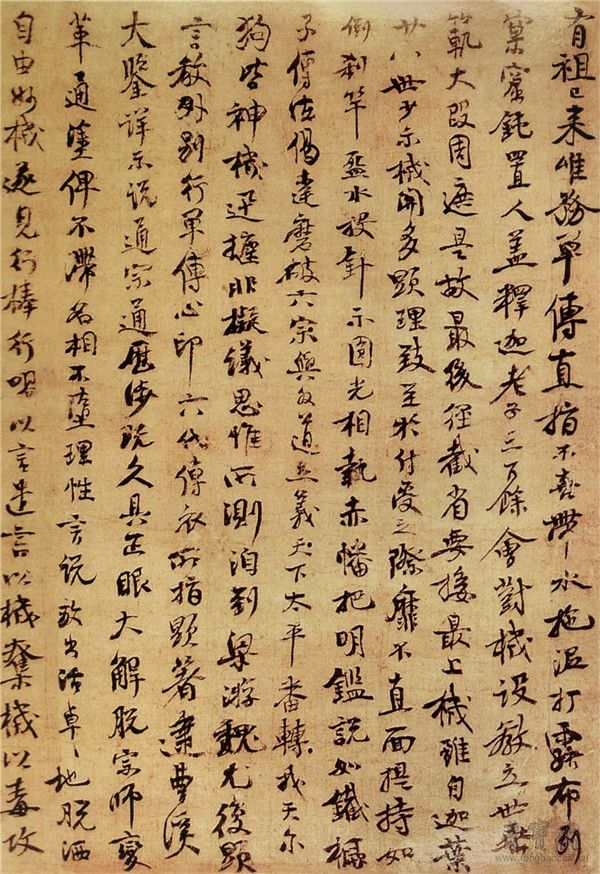 有祖已来唯務單傳直指不喜帶水拖泥打露布列
窠窟鈍置人盖釋迦老子三百餘會對機設教立世垂
範大段周遮是故最後徑截省要接最上機雖自迦葉
廿八世少示機關多顯理致至於付受之際靡不直面提持如
倒刹竿盋水投針示圓光相執赤幡把明鑑說如鐵橛
子傳法偈達磨破六宗與外道立義天下太平番轉我天尔
狗皆神機迅捷非擬議思惟所測洎到梁游魏尤復顯
言教外別行單傳心印六代傳衣所指顯著逮曹溪
大鑒詳示說通宗通歷涉既久具正眼大解脫宗師變
革通塗俾不滯名相不墮理性言說放出活卓〻地脫洒
自由妙機遂見行棒行喝以言遣言以機奪機以毒攻